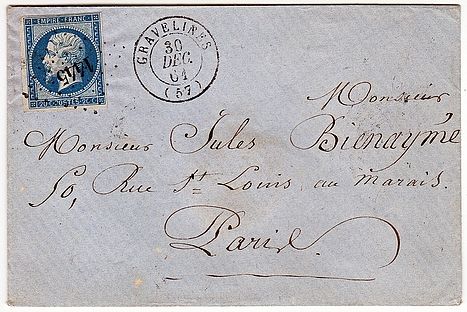 EMPIRE FRANC.
1445
GRAVELINES
30
DEC.
61
(57)
Monsieur
Monsieur Jules Bienaymé
50, Rue St Louis au marais.
Paris.